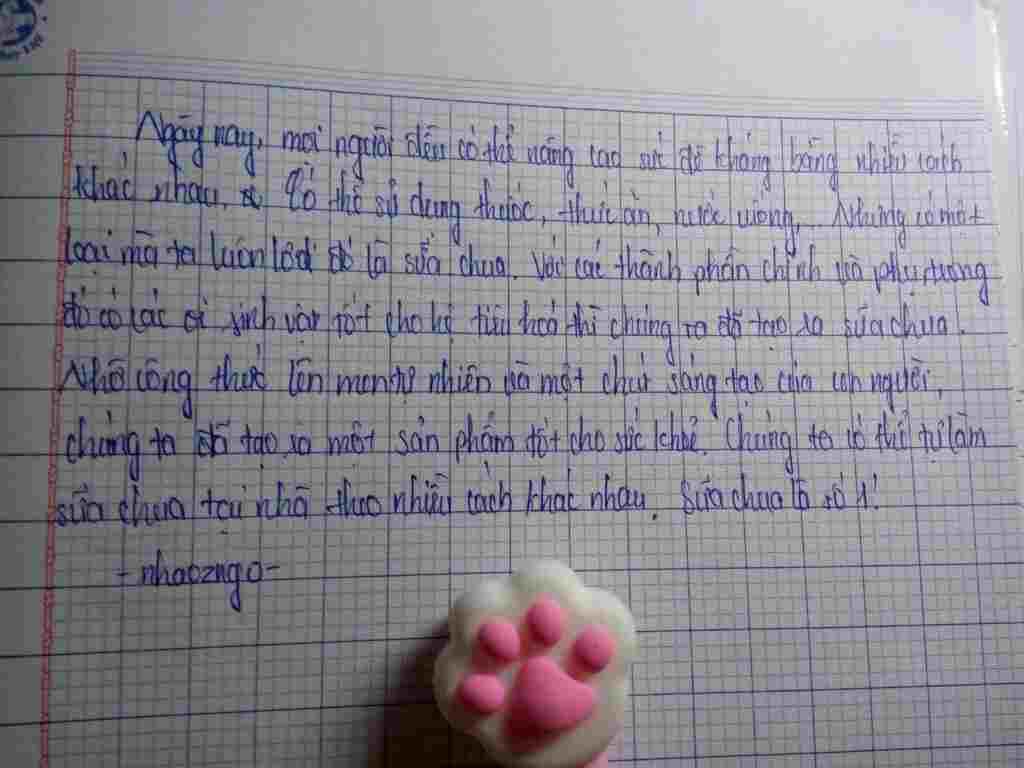 Ngày nay, mọi người đều có thể nâng cao sức đề kháng bằng nhiều cách
khác nhau. Có thể sử dụng thuốc, thức ăn, nước uống,... Nhưng có một
loại mà ta luôn đó là sữa chua. Với các thành phần chính và phụ trong
đó có các vi sinh vật tốt cho hệ tiêu hoá thì chúng ta đã tạo ra sữa chua.
Nhờ công thức lên men tự nhiên và một chút sáng tạo của con người,
chúng ta đã tạo ra một sản phẩm tốt cho sức khoẻ. Chúng ta có thể tự làm
sữa chua tại nhà theo nhiều cách khác nhau. Sữa chua là số 1!
-nhaozngo-